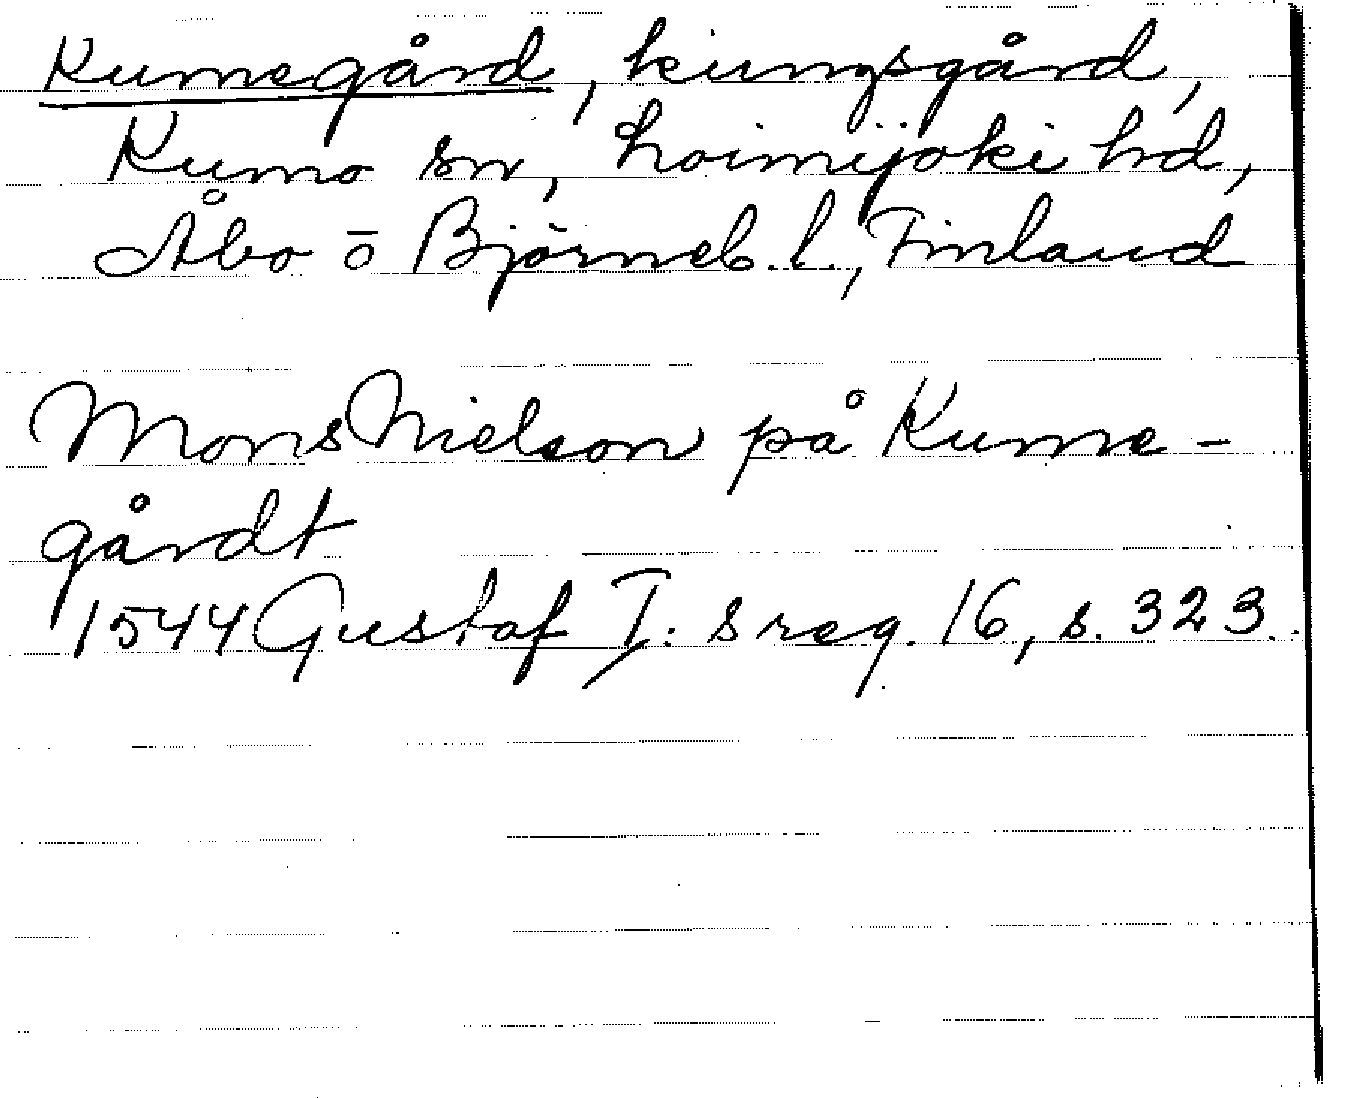 Kumegård, kungsgård,
Kumo sn, Loimijoki hd,
Åbo o Björneb. l., Finland
Mons Nielson på Kume-
gårdt
1544 Gustaf I:s reg. 16, s. 323.